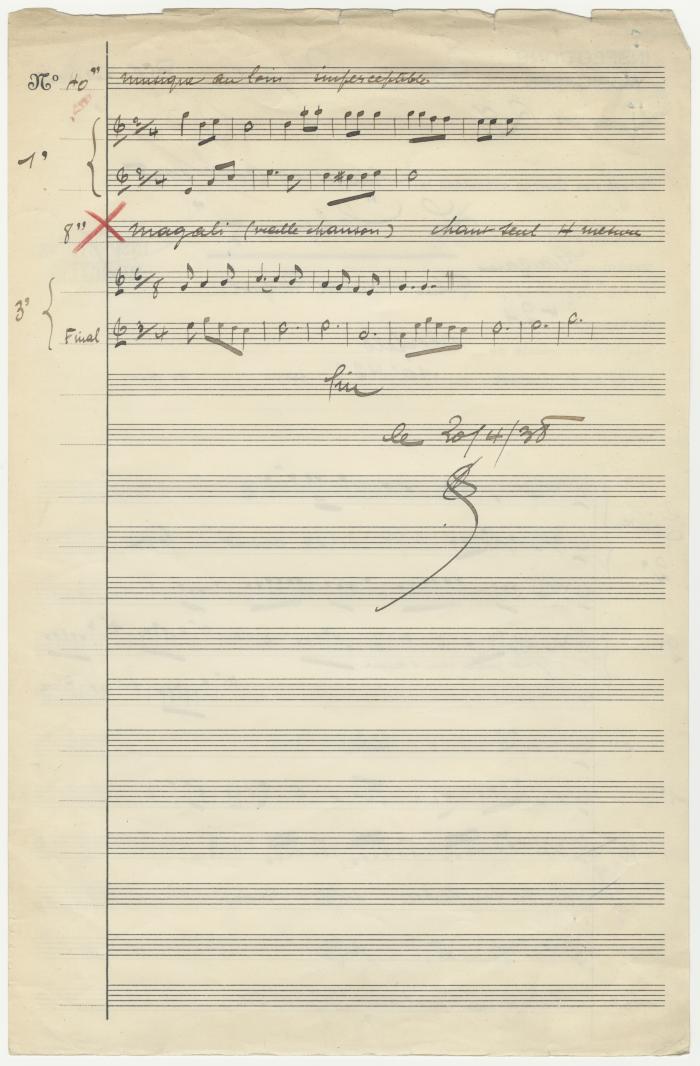 No 40" musique au loin imperceptible
1°
8" X Magali (vieille chanson) chant seul 4 mesure
3°
Final
fin
le 20/4/38